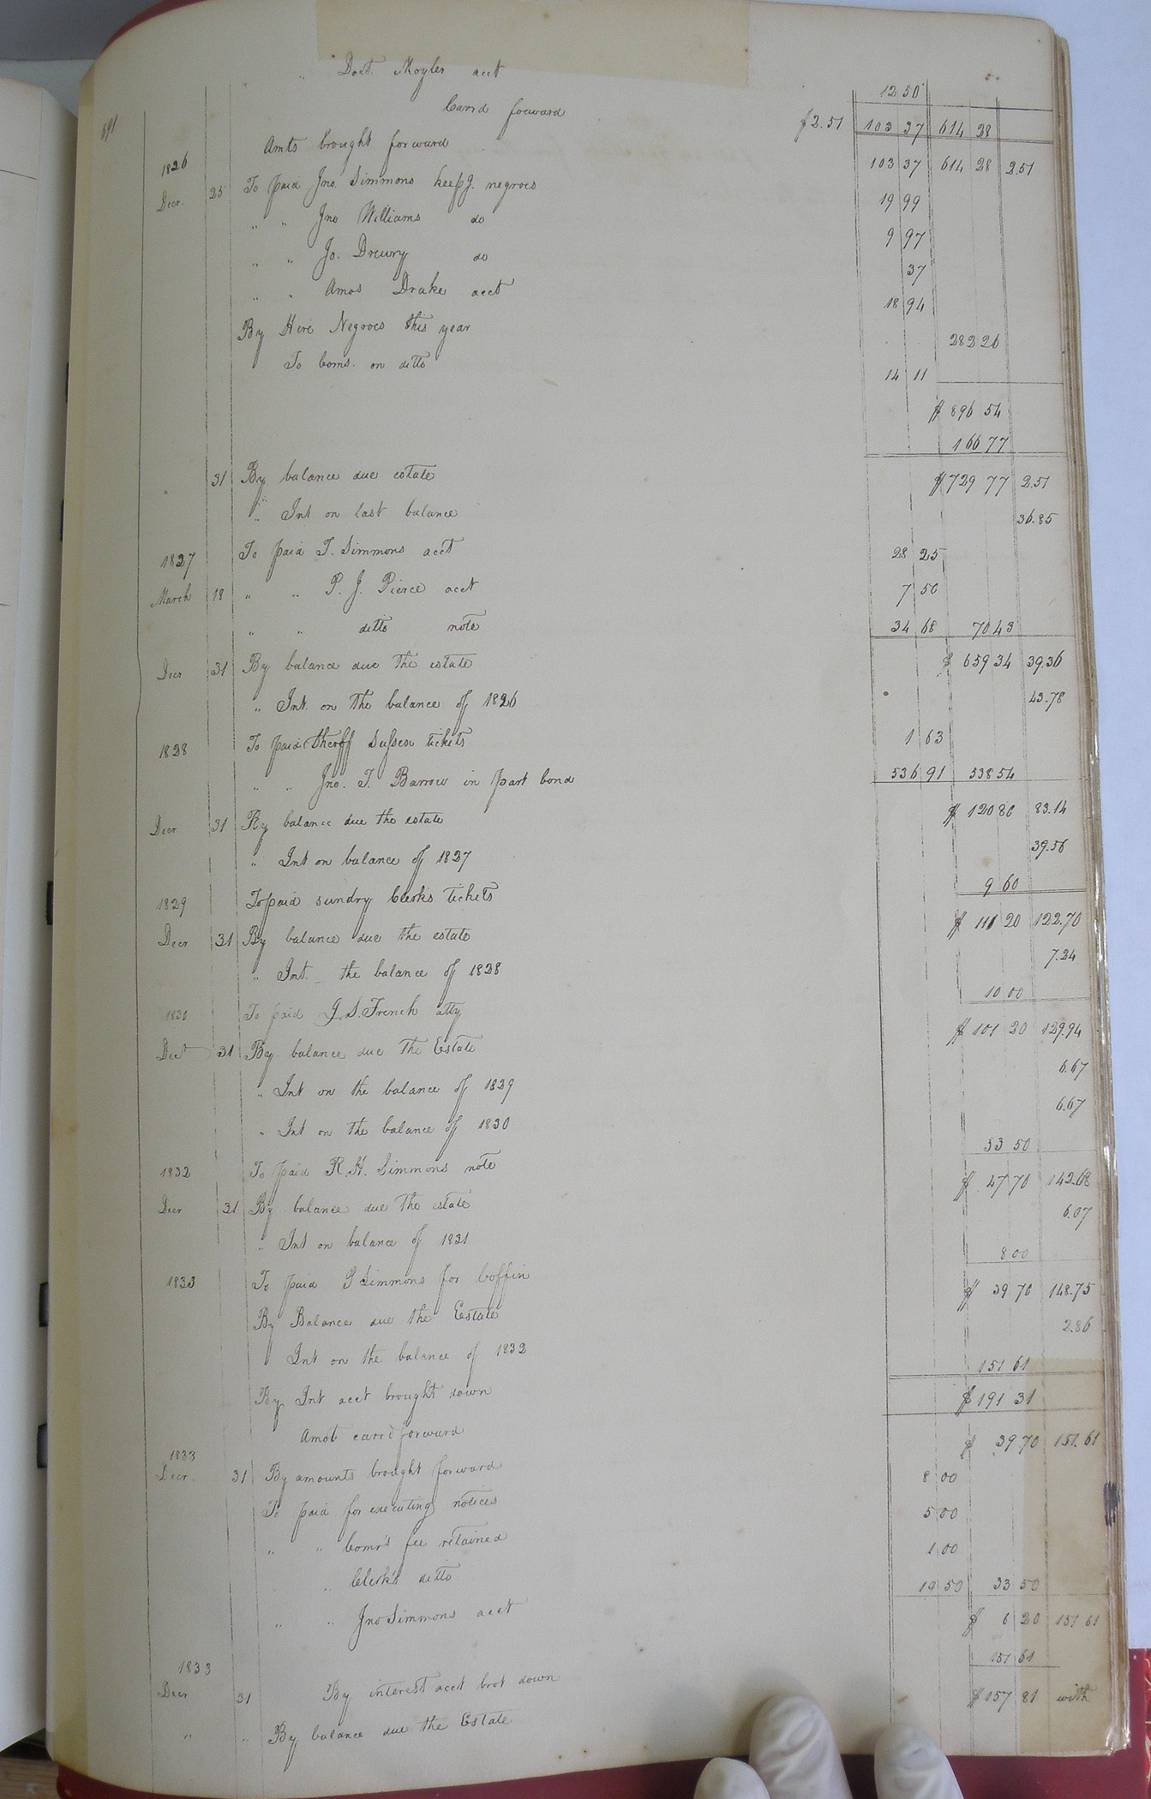 " Doct. Moyler acct 12 50
Carrd forward $2.51 103 37 614 28
391
Amts brought forward 103 37 614 28 2.51
1826
Decr. 25 To paid Jno. Simmons keepg. negroes 19 99
" " Jno Williams do 9 97
" " Jo. Drewry do 37
" " Amos Drake acct 18 94
By Hire Negroes this year 282 26
To Coms. on ditto 14 11
$ 896 54
166 77
31 By balance due estate $ 729 77 2.51
" Int on last balance 36.85
1827 To paid T. Simmons acct 28 25
March 18 " " P. J. Pierce acct 7 50
" " ditto note 34 68 70 43
Decr 31 By balance due the estate $ 659 34 39.36
" Int. on the balance of 1826 43.78
1828 To paid Sheriff Sussex tickets 1 63
" " Jno. T. Barrow in part bond 536 91 538 54
Decr 31 By balance due the estate $ 120 80 83.14
" Int on balance of 1827 39.56
1829 To paid sundry Clerks tickets 9 60
Decr 31 By balance due the estate $ 111 20 122.70
" Int the balance of 1828 7.24
1830 To paid J. S. French atty 10 00
Decr 31 By balance due the Estate $ 101 20 129.94
" Int on the balance of 1829 6.67
" Int on the balance of 1830 6.67
1832 To paid R. H. Simmons note 53 50
Decr 31 By balance due the estate $ 47 70 142.68
" Int on balance of 1831 6.07
1833 To paid S Simmons for Coffin 8 00
By Balance due the Estate $ 39 70 148.75
" Int on the balance of 1832 2.86
By Int acct brought down 151 61
Amot carrd forward $ 191 31
1833
Decr. 31 By amounts brought forward $ 39 70 151.61
To paid for executing notices 8 00
" " Comr's fee retained 5 00
" Clerk's ditto 1 00
" " Jno Simmons acct 19 50 33 50
$ 6 20 151 61
1833
Decr 31 By interest acct brot down 151 61
" " By balance due the Estate $ 157 81 with